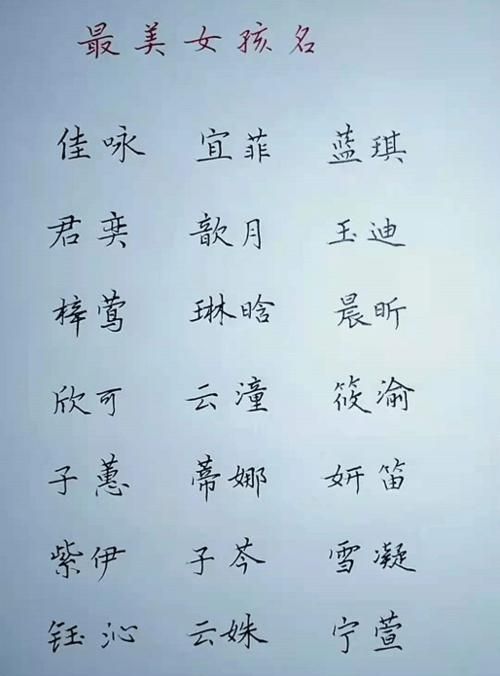 最美女孩名
佳咏 宜菲 蓝琪
君奕 歆月 玉迪
梓莺 琳晗 晨昕
欣可 云潼 筱渝
子蕙 蒂娜 妍笛
紫伊 子芩 雪凝
钰沁 云姝 宁萱